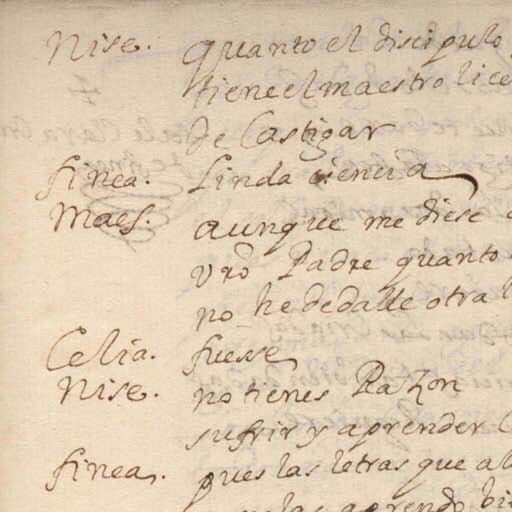 Nise. quanto el discipulo
tiene el maestro lice
de Castigar
finea. Linda ciencia
Maes. aunque me diese
vro Padre quanto
no he de dalle otra l
Celia. fuesse
Nise. no tienes Razon
sufrir y aprender
finea. pues las letras que al
aprendo